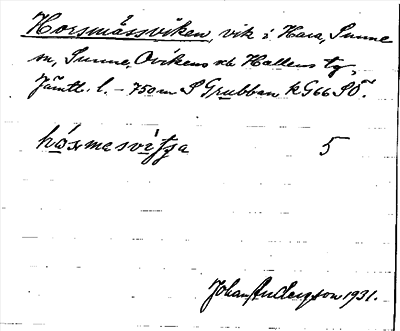 Horsmässviken, vik i Hara, Sunne
sn, Sunne, Ovikens o. Hallens tg,
Jämtl. l. – 750 m S Grubban k G66 SO.
håsmesvitja 5
Johan Anderson 1931.